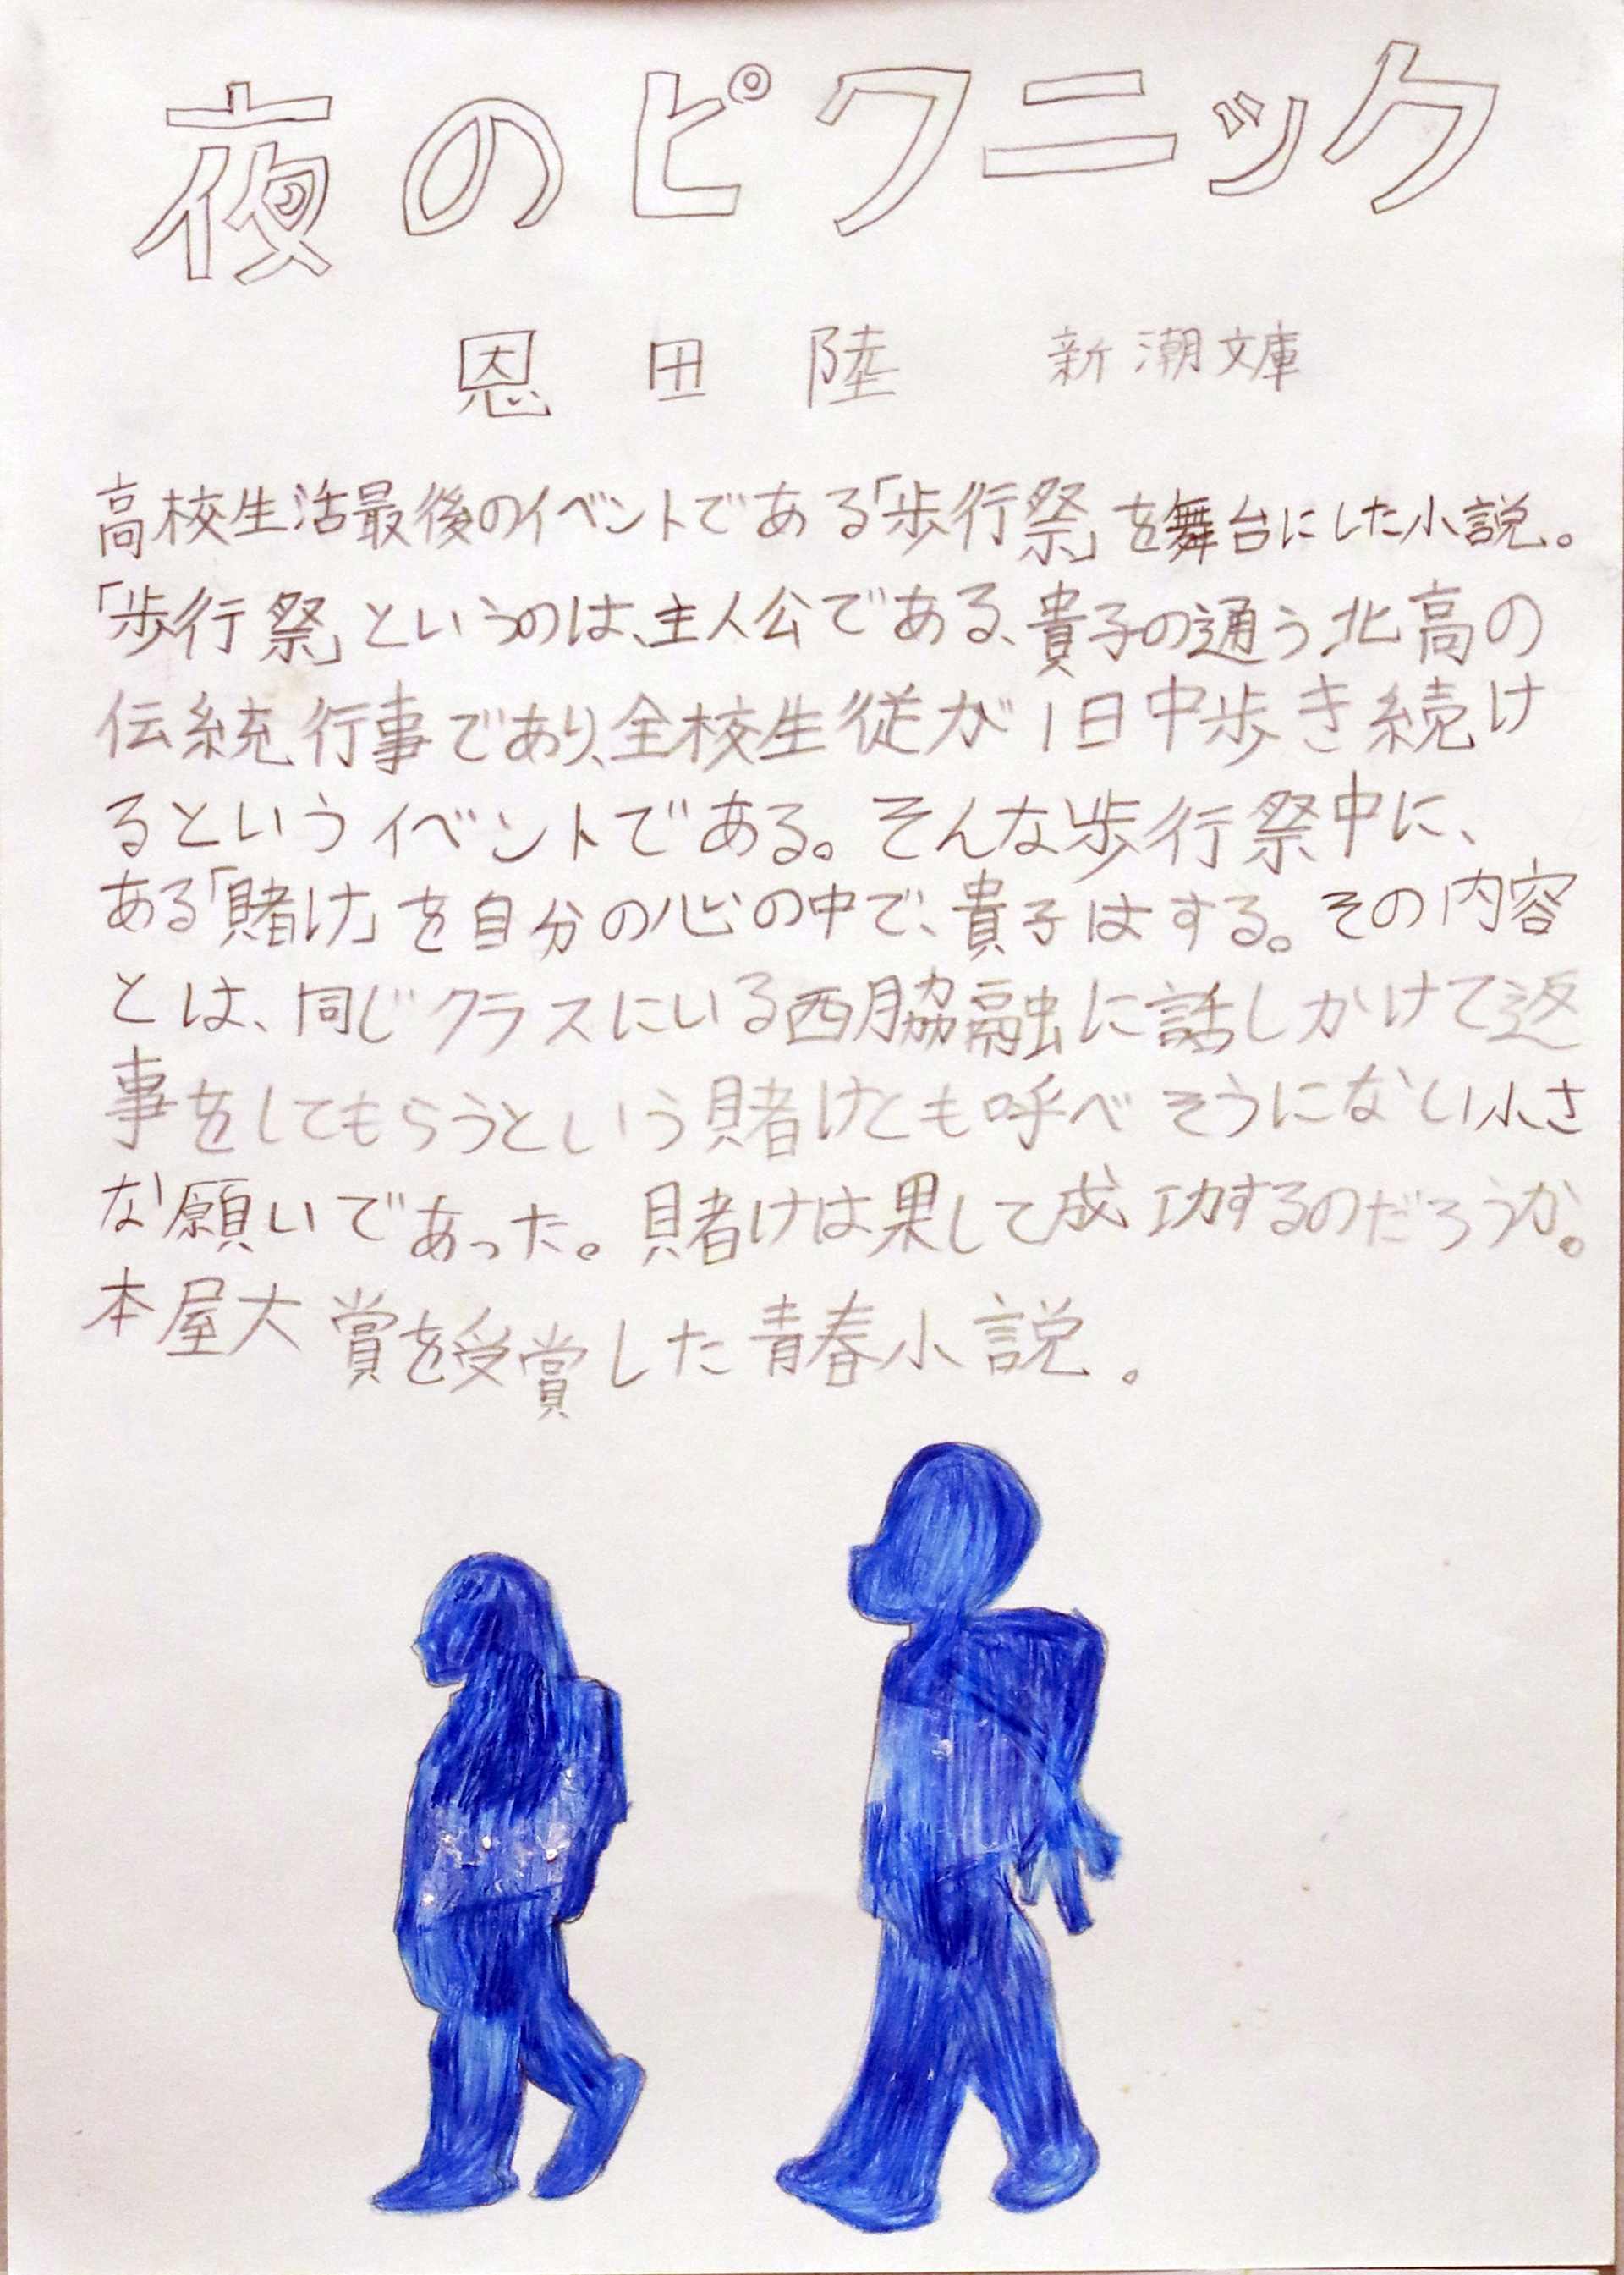 夜のピクニック
恩田陸 新潮文庫
高校生活最後のイベントである「歩行祭」を舞台にした小説。
「歩行祭」というのは、主人公である、貴子の通う北高の
伝統行事であり、全校生徒が1日中歩き続け
るというイベントである。そんな歩行祭中に、
ある「賭け」を自分の心の中で、貴子はする。その内容
とは、同じクラスにいる西脇融に話しかけて返
事をしてもらうという賭けとも呼べそうにない小さ
な願いであった。賭けは果して成功するのだろうか。
本屋大賞を受賞した青春小説。